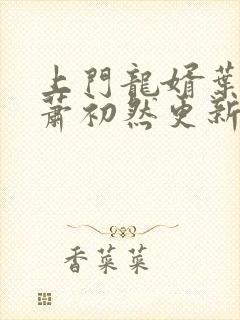 上門龍婿葉
蕭初然更新
香菜菜